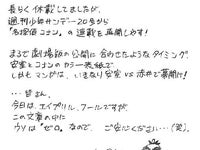 長らく休載してましたが、
週刊少年サンデー20号から
「名探偵コナン」の連載を再開します！
まるで劇場版の公開に合わせたようなタイミング。
安室とコナンのカラー表紙で、
しかもマンガは、いきなり安室vs赤井で幕開け！
…皆さん、
今日は、エイプリル、フールですが、
この文章の中に
ウソは“ゼロ”なので、ご安心ください…(笑)。